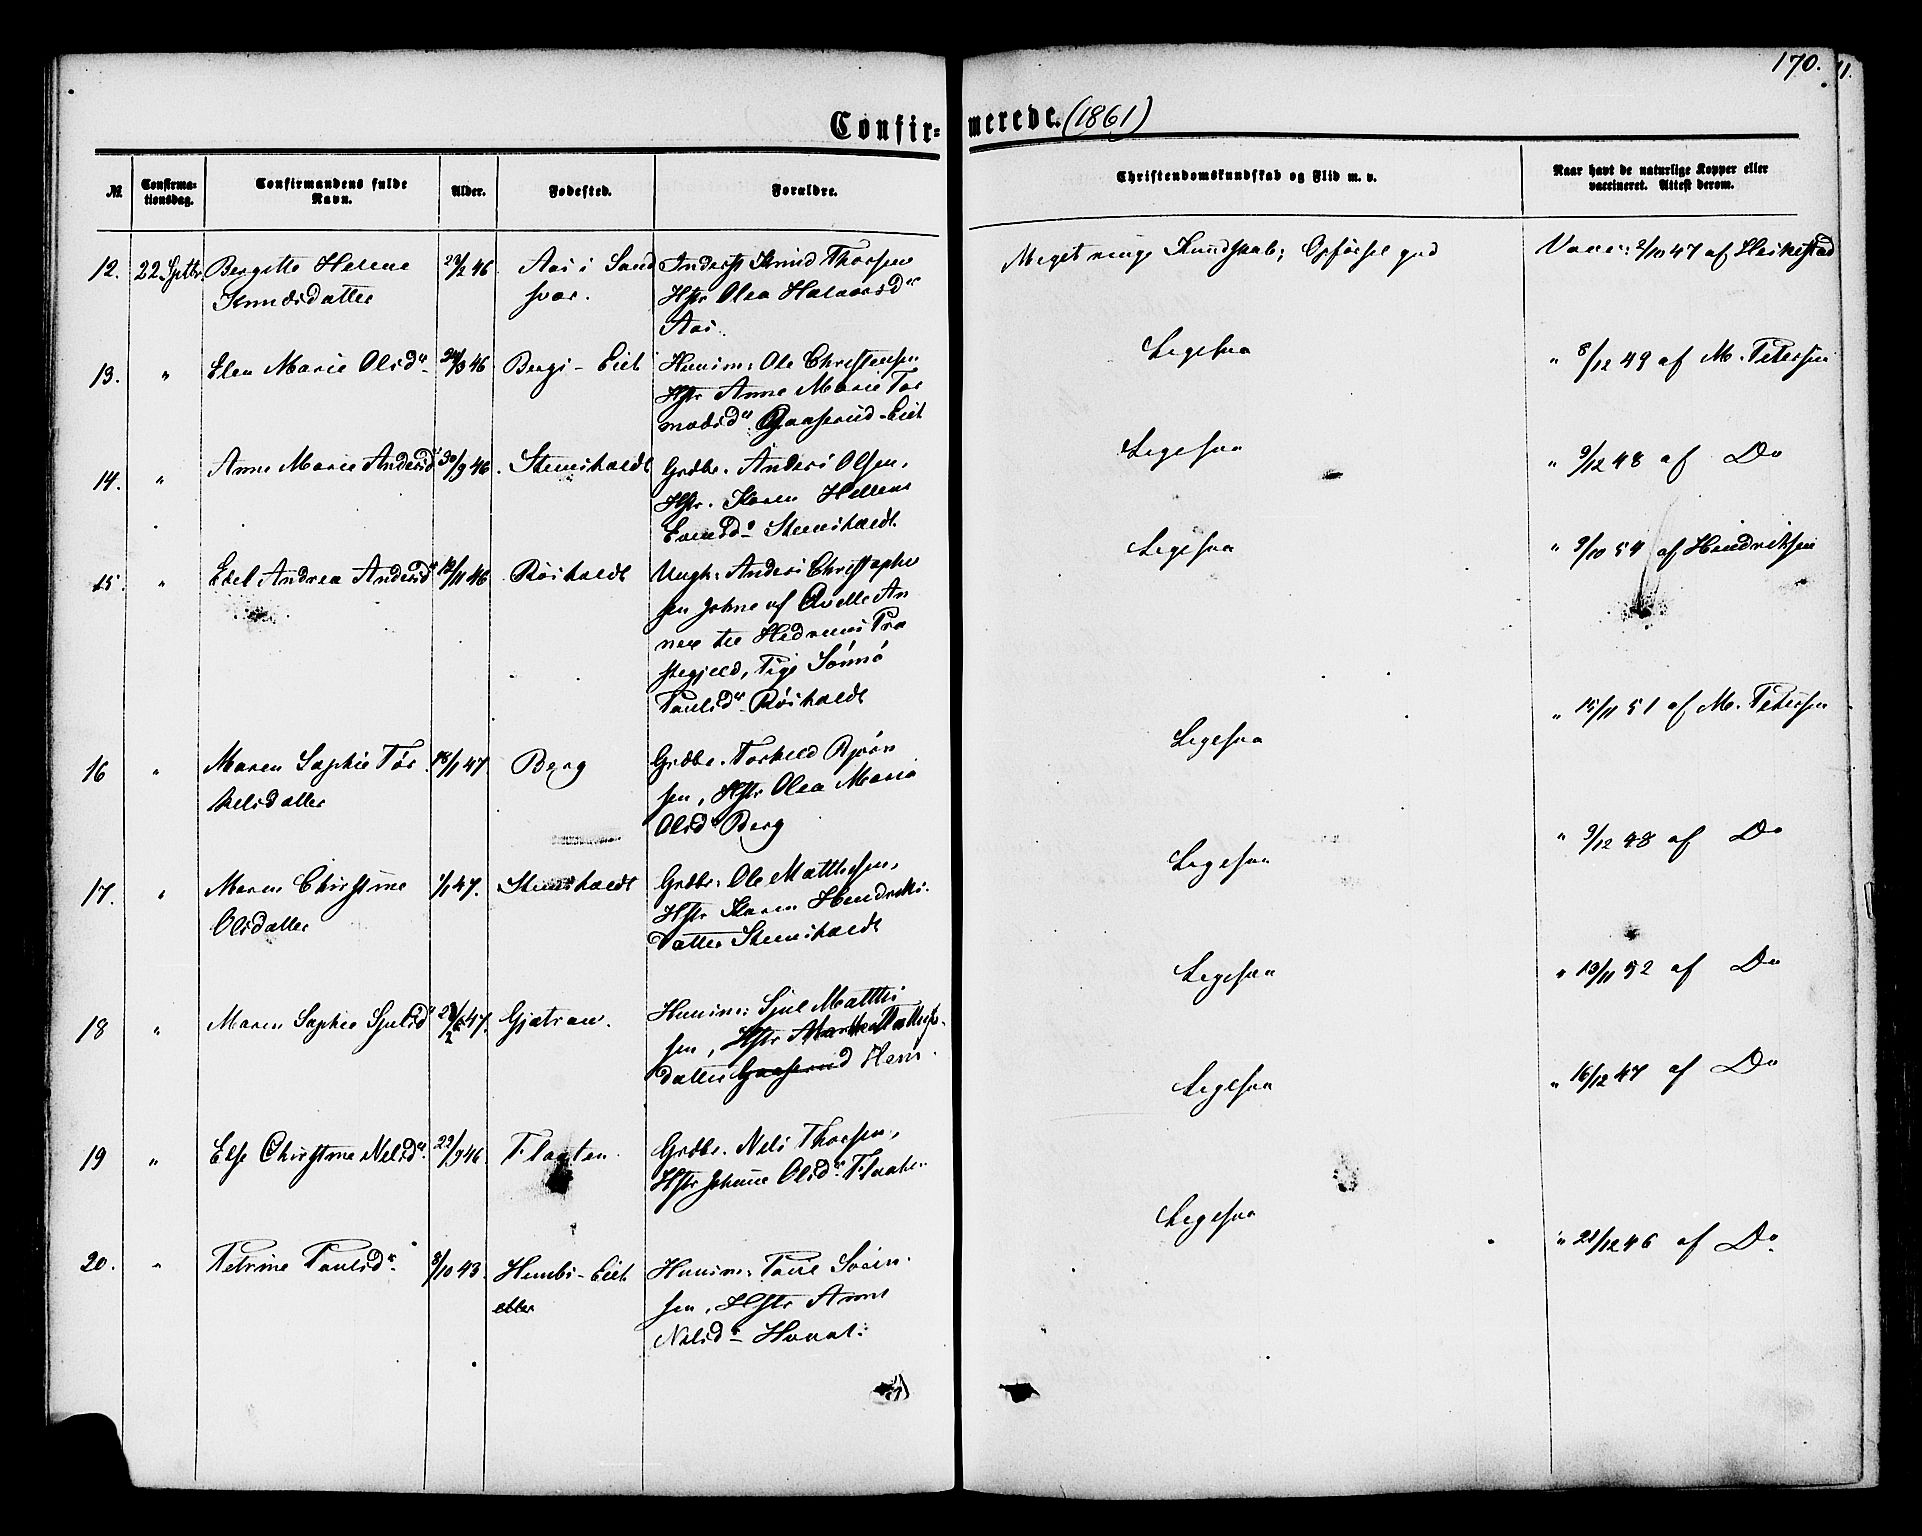 170.
11.
Confir= merede. (1861)
№
Confirma-
tionsdag.
Confirmandens fulde
Navn.
Alder.
Fødested.
Forældre.
Christendomskundskab og Flid m. v.
Naar havt de naturlige Kopper eller
vaccineret. Attest derom.
12. 22 Septbr Bergitte Helene
Knudsdatter
23/2 46
Aas i Sand
svær.
Inderst Knud Thorsen
Hstr Olea Halvorsdr
Aas.
Meget ringe Kundskab; Opførsel god
Vacc: 2/10 47 af Heikestad
13. " Elen Marie Olsdr
24/3 46
Bergs-Eiet
Huusm: Ole Christensen
Hstr Anne Marie Tor
modsd" Gaaserud-Eiet
Ligesaa
" 8/12 49 af M. Petersen
14. " Anne Marie Andersd"
30/9 46
Steensholdt
Grdbr. Anders Olsen,
Hstr. Karen Hellene
Evensd" Steensholdt.
Ligesaa
" 9/12 48 af Do
15. " Edel Andrea Andersd"
12/11 46
Røisholdt
Ungk: Anders Christophe
sen
Hedrums Præ
stegjeld, Pige
Paulsd" Røisholdt
Ligesaa
" 9/10 54 af Hendriksen
16 " Maren Sophie Tor
kelsdatter
18/1 47
Berg
Grdbr. Torkeld Bjørn
sen, Hstr Olea Maria
Olsd" Berg
Ligesaa
" 15/11 51 af M. Petersen
17. " Maren Christine
Olsdatter
1/1 47.
Steensholdt
Grdbr: Ole Matthisen,
Hstr Karen Hendriks-
datter Steensholdt
Ligesaa
" 9/12 48 af Do
18 " Maren Sophie Sjulsd"
47.
Huusm: Sjul Matthi
sen, Hstr
datter Gaaserud Hem.
Ligesaa
" 13/11 52 af Do
19 " Else Christine Nilsd"
22/9 46
Flaaten.
Grdbr. Nils Thorsen,
Hstr Johanne Olsd" Flaaten
Ligesaa
" 16/12 47 af Do
20. " Petrine Paulsd"
8/10 43.
Hembs-Eiet
eller
Huusm: Poul Svein-
sen, Hstr Anne
Nilsd"
Ligesaa
" 21/12 46 af Do